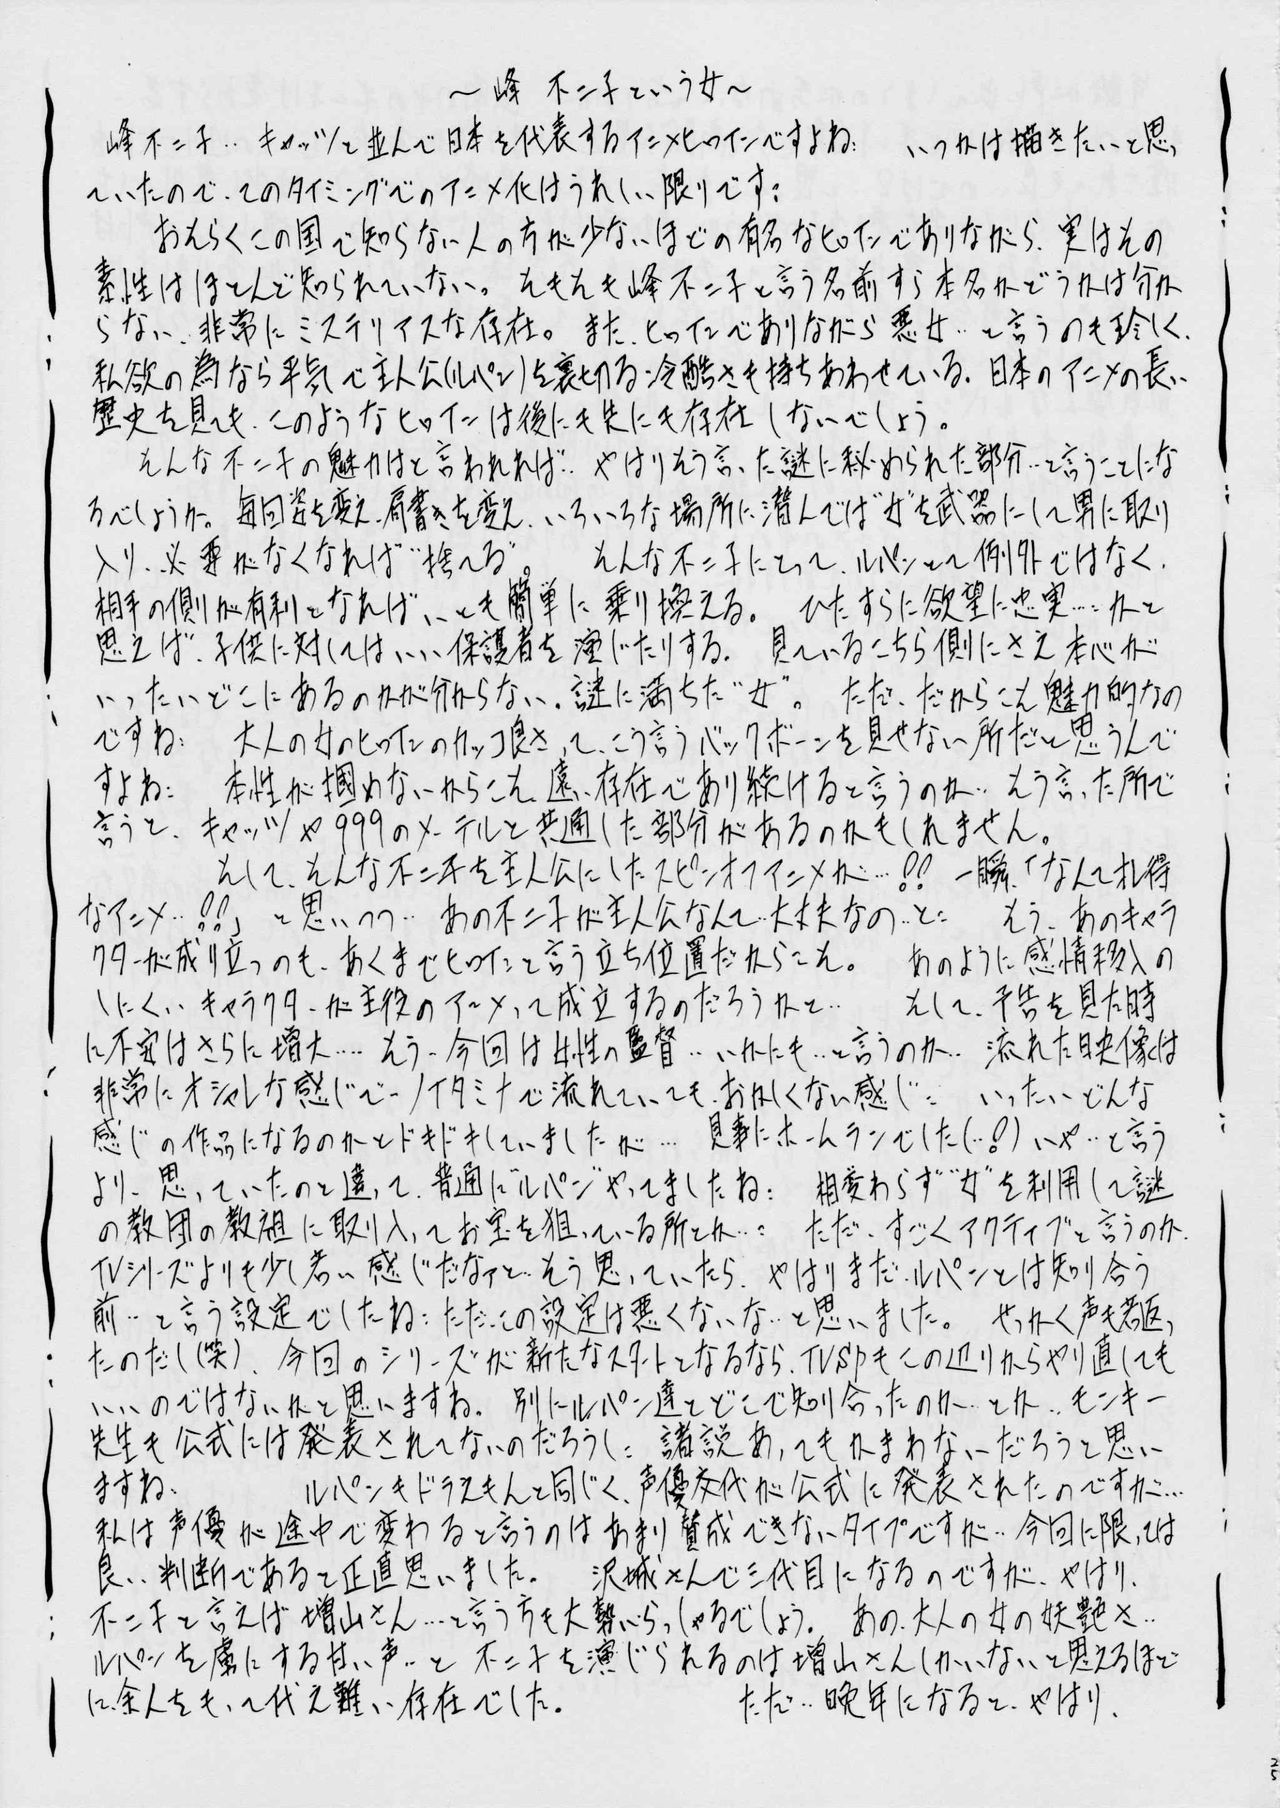 ～峰 不二子という女～
峰不二子‥キャッツと並んで日本を代表するアニメヒロインですよね： いつかは描きたいと思っ
ていたので、このタイミングでのアニメ化はうれしい限りです：
おそらくこの国で知らない人の方が少ないほどの有名なヒロインでありながら、実はその
素性はほとんど知られていない。そもそも峰不二子と言う名前すら本名かどうかは分か
らない、非常にミステリアスな存在。また、ヒロインでありながら悪女‥と言うのも珍しく、
私欲の為なら平気で主人公(ルパン)を裏切る冷酷さも持ちあわせている。日本のアニメの長い
歴史を見ても、このようなヒロインは後にも先にも存在しないでしょう。
そんな不二子の魅力はと言われれば‥やはりそう言った謎に秘められた部分‥と言うことにな
るでしょうか。毎回姿を変え、肩書きを変え、いろいろな場所に潜んでは“女”を武器にして男に取り
入り、必要がなくなれば“捨てる”。 そんな不二子にとって、ルパンとて例外ではなく、
相手の側が有利となれば、いとも簡単に乗り換える。 ひたすらに欲望に忠実…：かと
思えば、子供に対してはいい保護者を演じたりする。 見ているこちら側にさえ本心が
いったいどこにあるのかが分からない、謎に満ちた“女”。 ただ、だからこそ魅力的なの
ですね： 大人の女のヒロインのカッコ良さって、こう言うバックボーンを見せない所だと思うんで
すよね： 本性が掴めないからこそ、遠い存在であり続けると言うのか‥そう言った所で
言うと、キャッツや999のメーテルと共通した部分があるのかもしれません。
そして、そんな不二子を主人公にしたスピンオフアニメが…!! 一瞬、「なんて札得
なアニメ‥!!」と思いつつ‥あの不二子が主人公なんて‥大丈夫なの‥と： もう、あのキャラ
クターが成り立つのも、あくまでヒロインと言う立ち位置だからこそ。 あのように感情移入の
しにくいキャラクターが主役のアニメって成立するのだろうかと‥ そして、予告を見た時
に不安はさらに増大…‥そう‥今回は女性の監督‥いかにも‥と言うのか‥流れた映像は
非常にオシャレな感じで‥ノイタミナで流れていても、おかしくない感じ： いったいどんな
感じの作品になるのかとドキドキしていましたが…見事にホームランでした(‥!) いや‥と言う
より、思っていたのと違って、普通に“ルパン”やってましたね： 相変わらず“女”を利用して謎
の教団の教祖に取り入ってお宝を狙っている所とか…： ただ、すごくアクティブと言うのか、
TVシリーズよりも少し若い感じだなァと‥そう思っていたら、やはりまだルパンとは知り合う
前‥と言う設定でしたね：ただ、この設定は悪くないな‥と思いました。 せっかく声も若返っ
たのだし(笑)、今回のシリーズが新たなスタートとなるなら、TVSPもこの辺りからやり直しても
いいのではないかと思いますね。別にルパン達とどこで知り合ったのか‥とか‥モンキー
先生も公式には発表されてないのだろうし：諸説あってもかまわないだろうと思い
ますね。 ルパンもドラえもんと同じく、声優交代が公式に発表されたのですが…
私は声優が途中で変わると言うのはあまり賛成できないタイプですが‥今回に限っては
良い判断であると正直思いました。 沢城さんで三代目になるのですが、やはり、
不二子と言えば増山さん…と言う方も大勢いらっしゃるでしょう。あの、大人の女の妖艶さ‥
ルパンを虜にする甘い声‥と 不二子を演じられるのは増山さんしかいないと思えるほど
に、余人をもって代え難い存在でした。 ただ‥晩年になると、やはり、
25